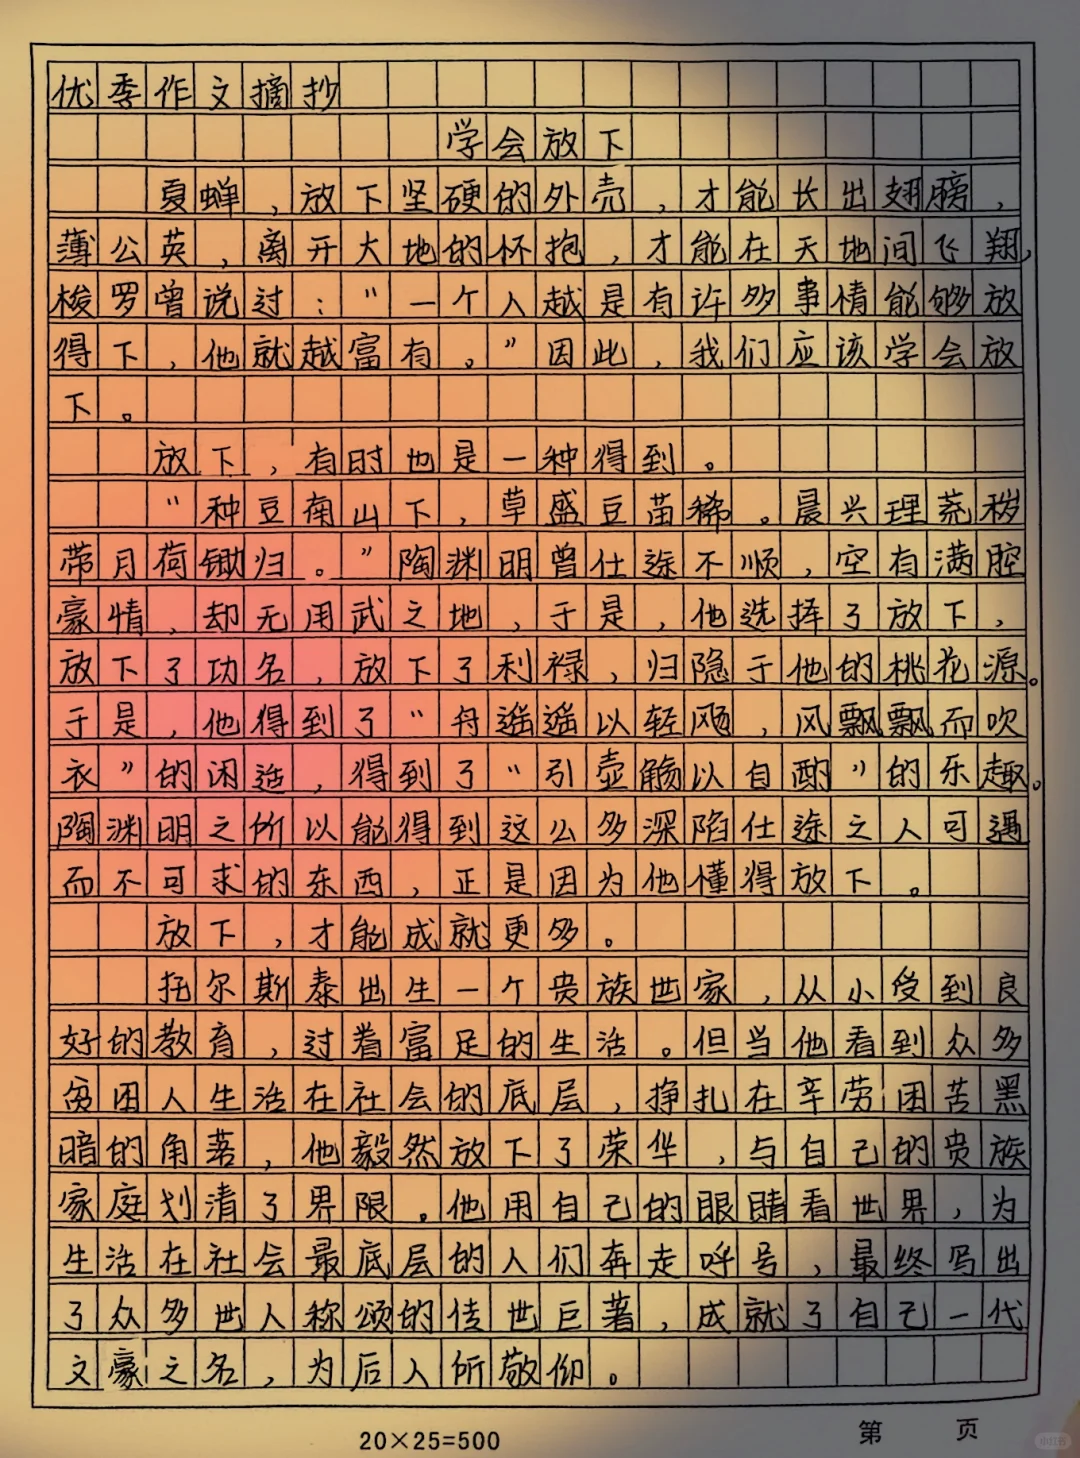 优季作文摘抄
学会放下
夏蝉，放下坚硬的外壳，才能长出翅膀，
薄公英，离开大地的怀抱，才能在天地间飞翔，
梭罗曾说过："一个人越是有许多事情能够放
得下，他就越富有。"因此，我们应该学会放
下。
放下，有时也是一种得到。
"种豆南山下，草盛豆苗稀。晨兴理荒秽
带月荷锄归。"陶渊明曾仕途不顺，空有满腔
豪情，却无用武之地，于是，他选择了放下，
放下了功名，放下了利禄，归隐于他的桃花源。
于是，他得到了"舟遥遥以轻飏，风飘飘而吹
衣"的闲适，得到了"引壶觞以自酌"的乐趣。
陶渊明之所以能得到这么多深陷仕途之人可遇
而不可求的东西，正是因为他懂得放下。
放下，才能成就更多。
托尔斯泰出生一个贵族世家，从小受到良
好的教育，过着富足的生活。但当他看到众多
贫困人生活在社会的底层，挣扎在辛劳困苦黑
暗的角落，他毅然放下了荣华，与自己的贵族
家庭划清了界限。他用自己的眼睛看世界，为
生活在社会最底层的人们奔走呼号，最终写出
了众多世人称颂的传世巨著，成就了自己一代
文豪之名，为后人所敬仰。
20×25=500
第 页
小红书